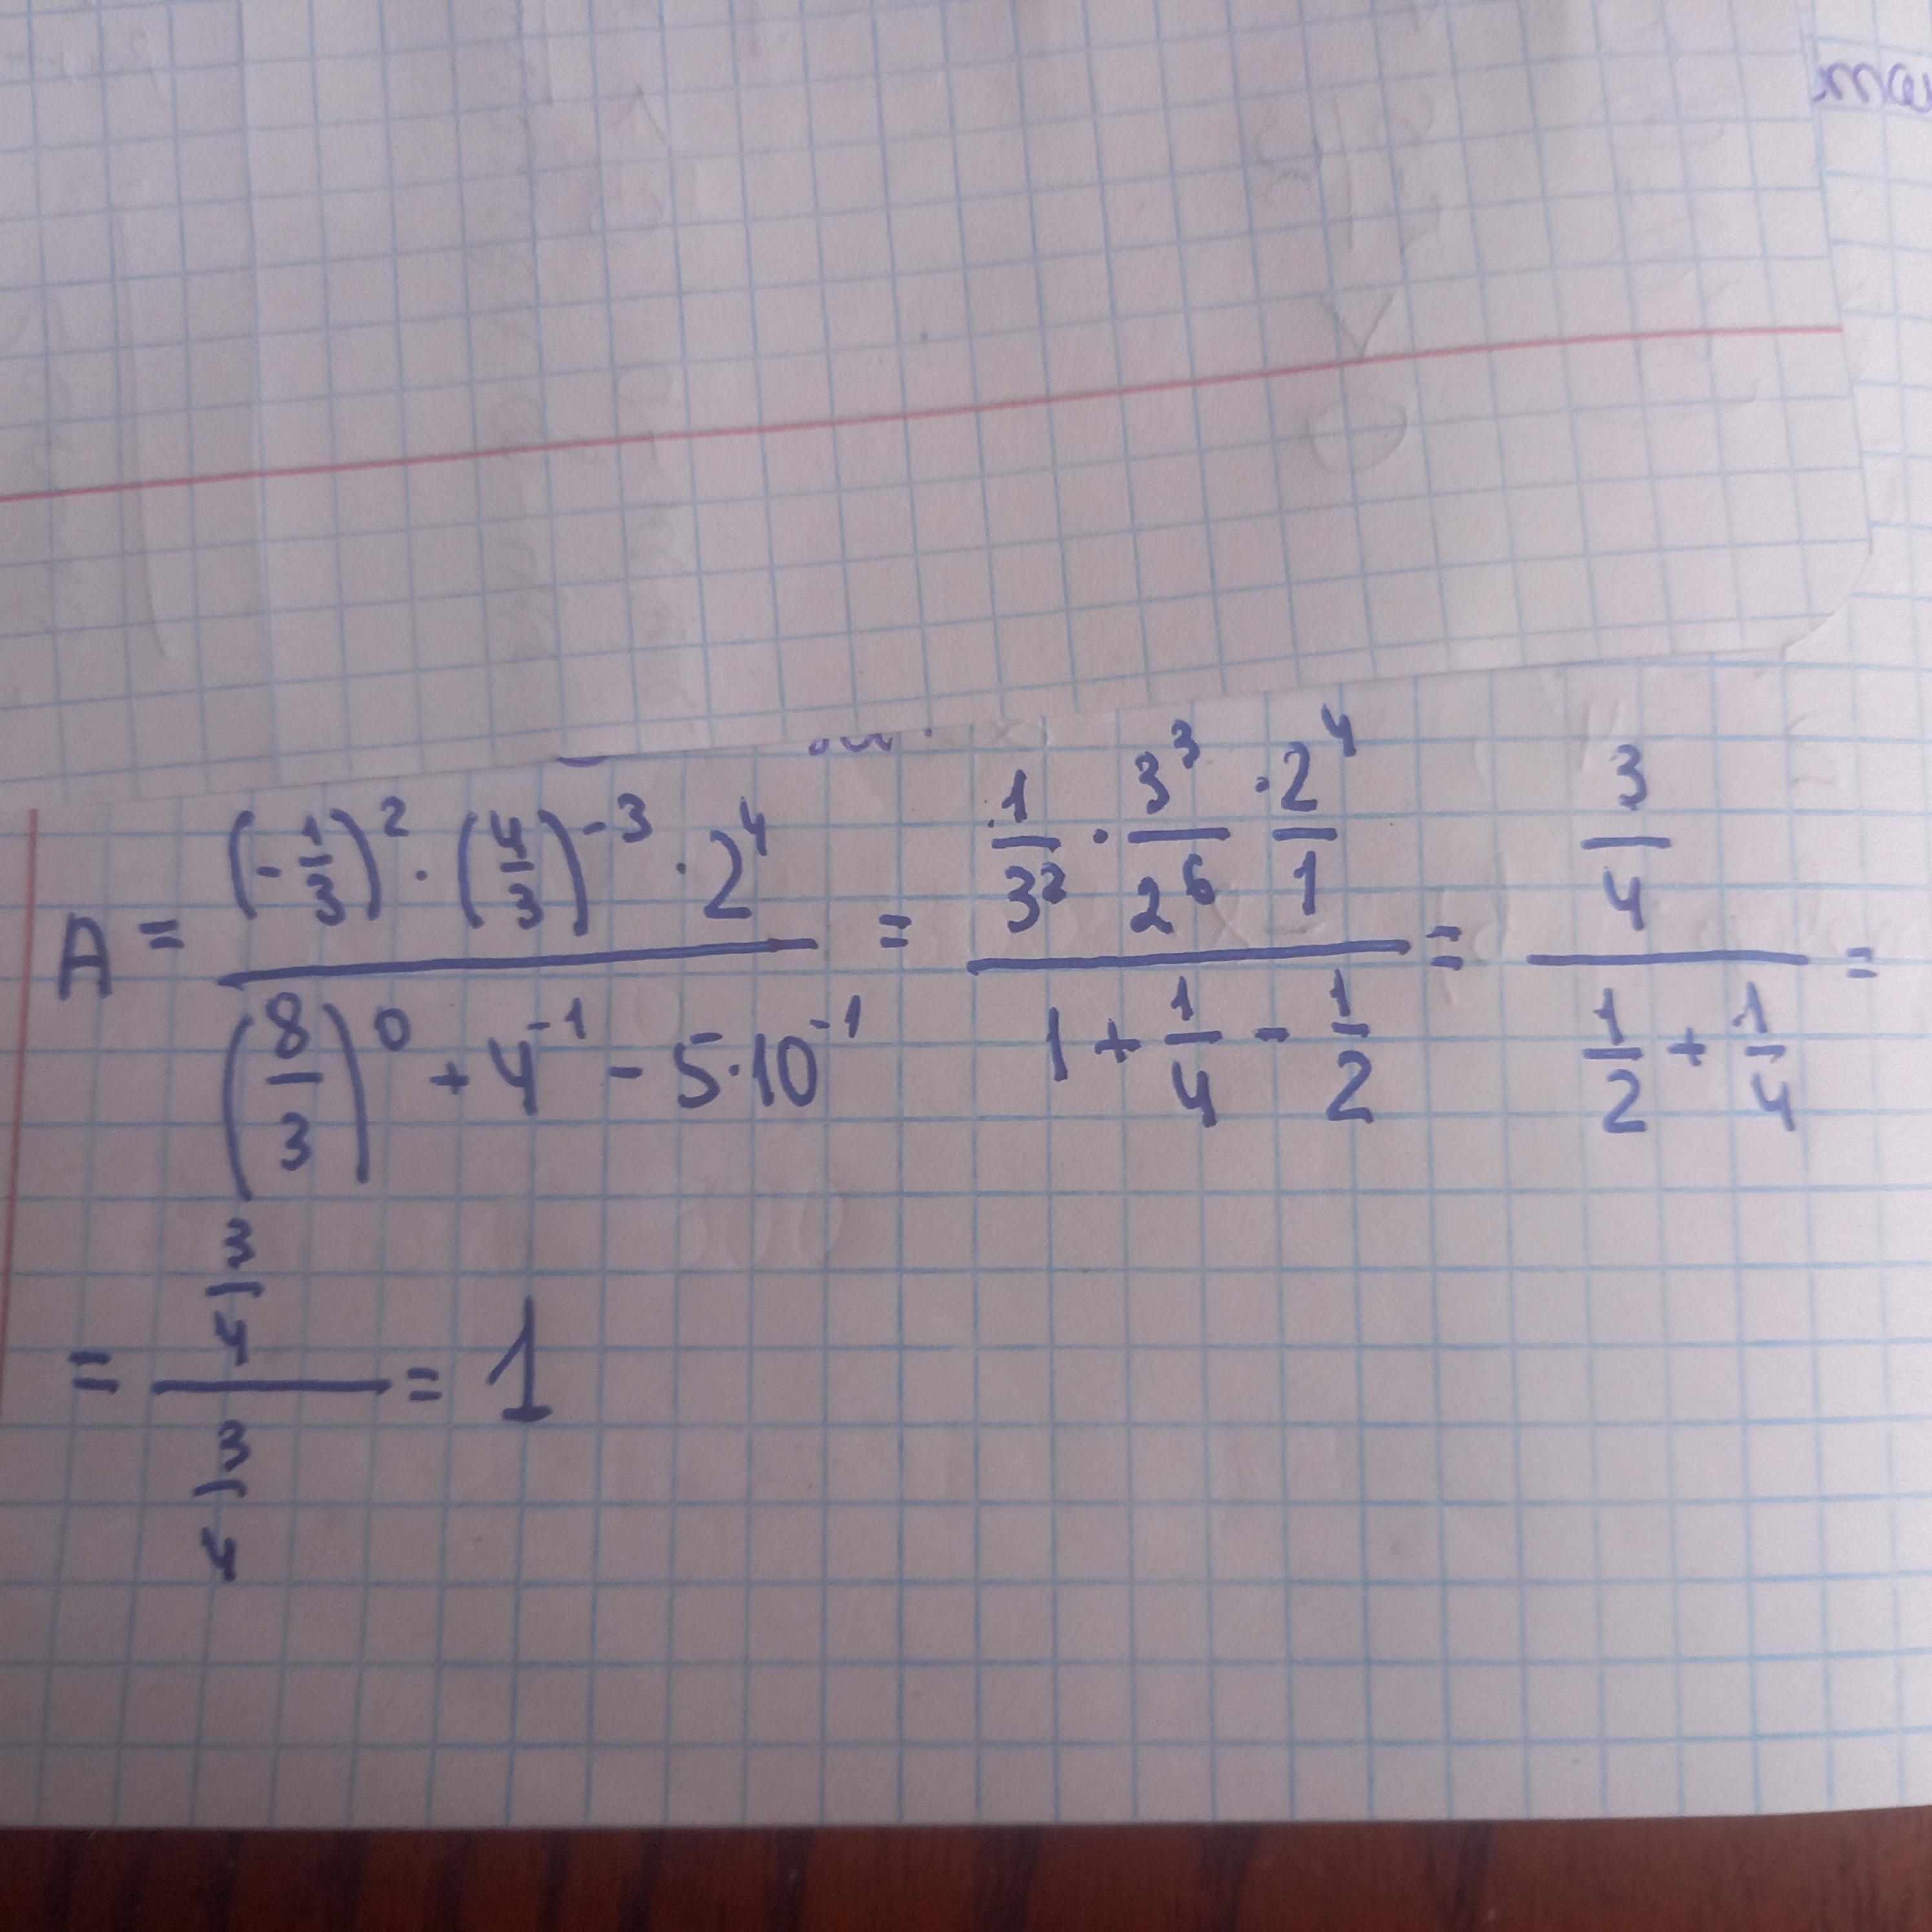 A = \frac{(-\frac{1}{3})^2 · (\frac{4}{3})^{-3} · 2^4}{(\frac{8}{3})^0 + 4^{-1} - 5·10^{-1}} = \frac{\frac{1}{3^2} · \frac{3^3}{2^6} · \frac{2^4}{1}}{1 + \frac{1}{4} - \frac{1}{2}} = \frac{\frac{3}{4}}{\frac{1}{2} + \frac{1}{4}} =
= \frac{\frac{3}{4}}{\frac{3}{4}} = 1